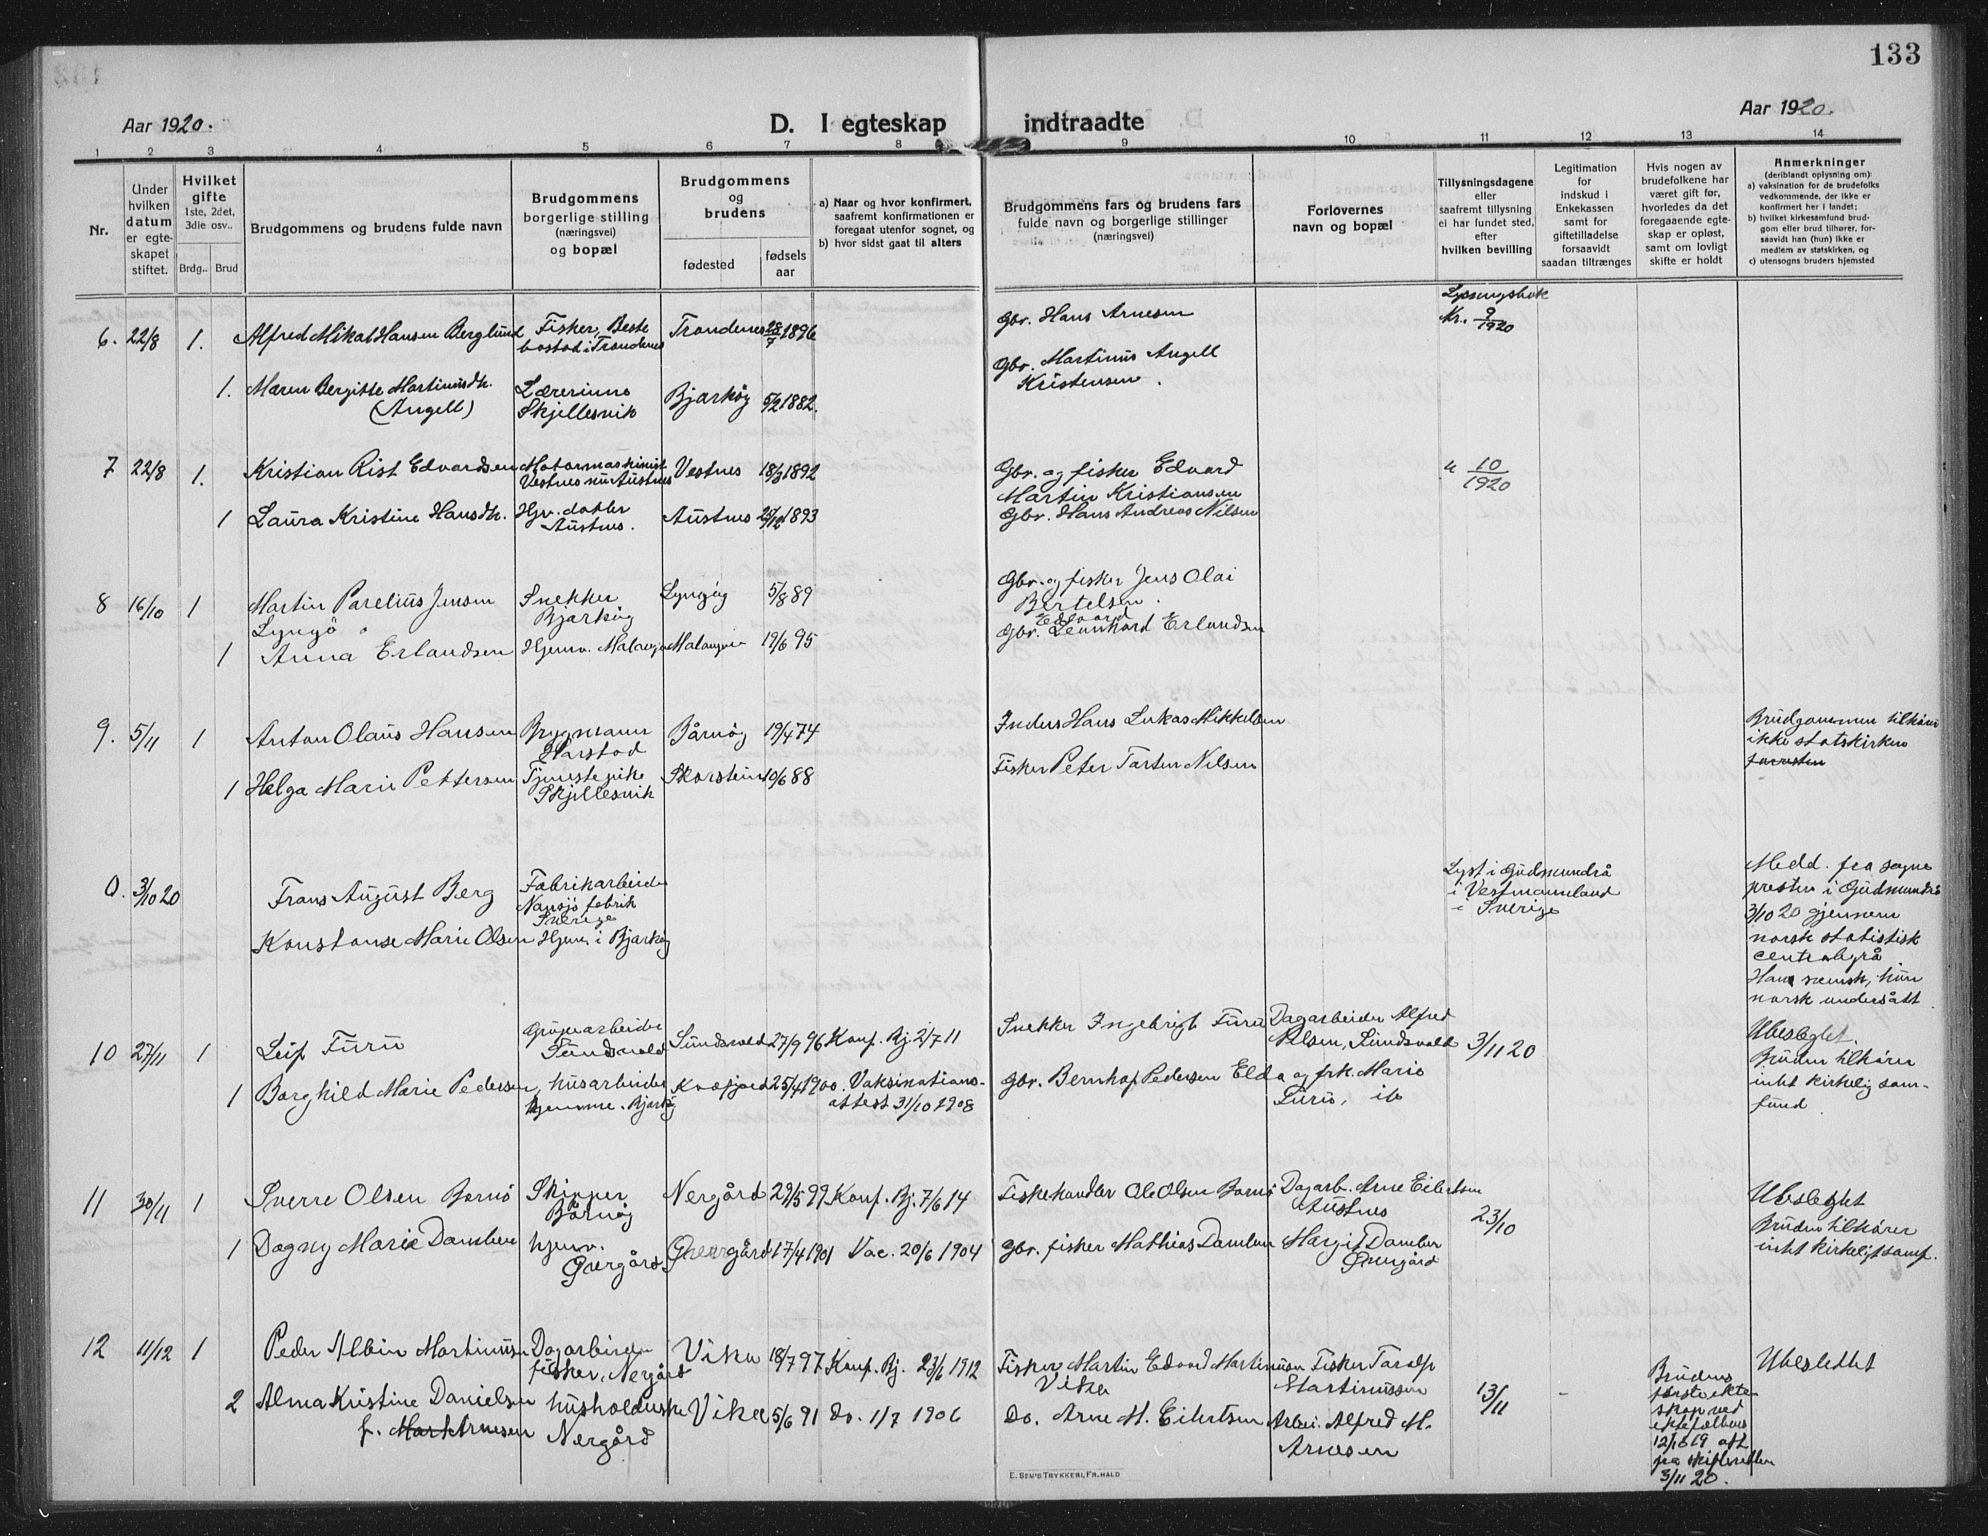 133
Aar 1920.
D. I egteskap indtraadte
Aar 1920.
1 2 3 4 5 6 7 8 9 10 11 12 13 14
Nr.
Under
hvilken
datum
er egte-
skapet
stiftet.
Hvilket
gifte
1ste, 2det,
3die osv..
Brdg.. Brud
Brudgommens og brudens fulde navn
Brudgommens
borgerlige stilling
(næringsvei)
og bopæl
Brudgommens
og
brudens
fødested
fødsels
aar
a) Naar og hvor konfirmert,
saafremt konfirmationen er
foregaat utenfor sognet, og
b) hvor sidst gaat til alters
Brudgommens fars og brudens fars
fulde navn og borgerlige stillinger
(næringsvei)
Forlovernes
navn og bopæl
Tillysningsdagene
eller
saafremt tillysning
ei har fundet sted,
efter
hvilken bevilling
Legitimation
for
indskud i
Enkekassen
samt for
giftetilladelse
forsaavidt
saadan tiltrænges
Hvis nogen av
brudefolkene har
været gift før,
hvorledes da det
foregaaende egte-
skap er opløst,
samt om lovligt
skifte er holdt
Anmerkninger
(deriblandt oplysning om)
a) vaksination for de brudefolks
vedkommende, der ikke er
konfirmert her i landet;
b) hvilket kirkesamfund brud-
gom eller brud tilhører, for-
saavidt han (hun) ikke er
medlem av statskirken, og
c) utensogns bruders hjemsted
6. 22/8 1. Alfred Mikal Hansen Berglund Fisker, Beste
bostad i Trondenes Trondenes 28/7 1896 Gbr. Hans Arnesen Lysningsbok
Nr. 9/1920
1. Maren Bergitte Martinusdtr.
(Angell) Lærerinne
Skjellesvik Bjarkøy 5/2 1882. Gbr. Martinus Angell
Kristensen.
7 22/8 1. Kristian Rist Edvardsen Motormaskinist
Vestnes nu Austnes Vestnes 18/3 1892 Gbr. og fisker Edvard
Martin Kristiansen " 10/1920
1 Laura Kristine Hansdtr. Hjv. datter
Austnes. Austnes 25/12 1893 Gbr. Hans Andreas Nilsen
8 16/10 1 Martin Parelius Jensen
Lyngö Snekker
Bjarkøy Lyngöy 5/8 89 Gbr. og fisker Jens Olai
Bertelsen.
1 Anna Erlandsen Hjemv. Malangen Malangen 19/6 95 Edvard
Gbr. Leonhard Erlandsen
9. 5/11 1 Anton Olaus Hansen Bryggmann
Harstad Bårnöy 19/4 74 Inders Hans Lukas Mikkelsen Brudgommen tilhører
ikke statskirken
1 Helga Marie Pettersen Tjenestepike
Skjellesvik Skorstein 10/6 88 Fisker Peter Tarter Nilsen
0. 3/10 20 Frans August Berg Fabrikarbeider
Nansjö fabrik
Sverige Lyst i Gudmundrå
i Vestmannland
i Sverige Medd. fra sogne
presten i Gudmundrå
3/10 20 gjennem
norsk statistisk
centralbyrå
Han svensk, hun
norsk undersått.
Konstanse Marie Olsen Hjemv. i Bjarköy
10 27/11 1 Leif Furu Grupearbeider
Sundsvold Sundsvold 27/9 96 Konf. Bj. 2/7 11 Snekker Ingebrigt Furu Dagarbeider Alfred
Olsen, Sundsvold 3/11 20 Ubeslegtet.
Bruden tilhører
intet kirkelig sam-
fund.
1 Borghild Marie Pedersen, husarbeider
hjemme. Bjarköy Kvæfjord 25/4 1900. Vaksinations-
attest 31/10 1908 Gbr. Bernhof Pedersen Elda og frk. Marie
Furu, ib
11 30/11 1 Sverre Olsen Bornö Skipper
Bårnöy Nergård 29/5 99 Konf. Bj. 7/6 14 Fiskehandler Ole Olsen Bornö Dagarb. Arne Eilertsen
Austnes 23/10 Ubeslegtet
Bruden tilhører
intet kirkeligt samf.
1 Dagny Marie Danielsen hjemv.
Övergård Övergård 17/4 1901 Vac. 20/6 1904 gbr. fisker Mathias Danielsen Margit Danielsen
Övergård
12 11/12 1 Peder Albin Martinussen Dagarbeider
fisker, Nergård Vika 18/7 97 Konf. Bj. 23/6 1912 Fisker Martin Edvard Martinussen
Vika Fisker Toralf
Martinussen 13/11 - Brudens
første ekte
skap ved
ektefællens
12/10 19. att
fra skifteretten
3/11 20. Ubeslektet
2 Alma Kristine Danielsen
f. Arnesen husholderske
Nergård Vika 5/6 91 do. 1/7 1906 Do. Arne M. Eilertsen Arbei. Alfred M.
Arnesen
E. SEM'S TRYKKERI, FR.HALD